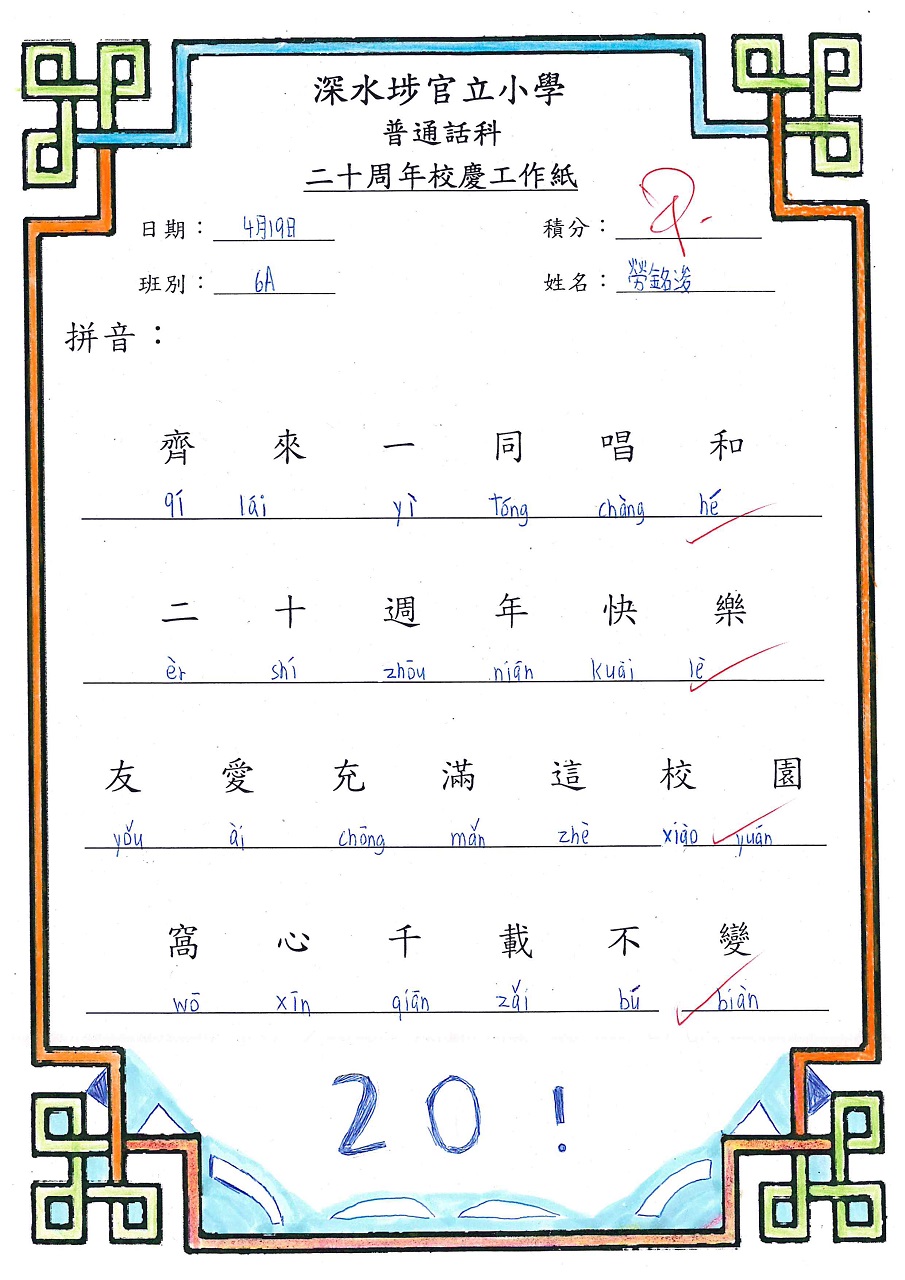 深水埗官立小學
普通話科
二十周年校慶工作紙
日期： 4月19日 積分： 甲.
班別： 6A 姓名： 勞銘浚
拼音：
齊 來 一 同 唱 和
qí lái yì tóng chàng hé
二 十 週 年 快 樂
èr shí zhōu nián kuài lè
友 愛 充 滿 這 校 園
yǒu ài chōng mǎn zhè xiào yuán
窩 心 千 載 不 變
wō xīn qiān zǎi bú biàn
20!